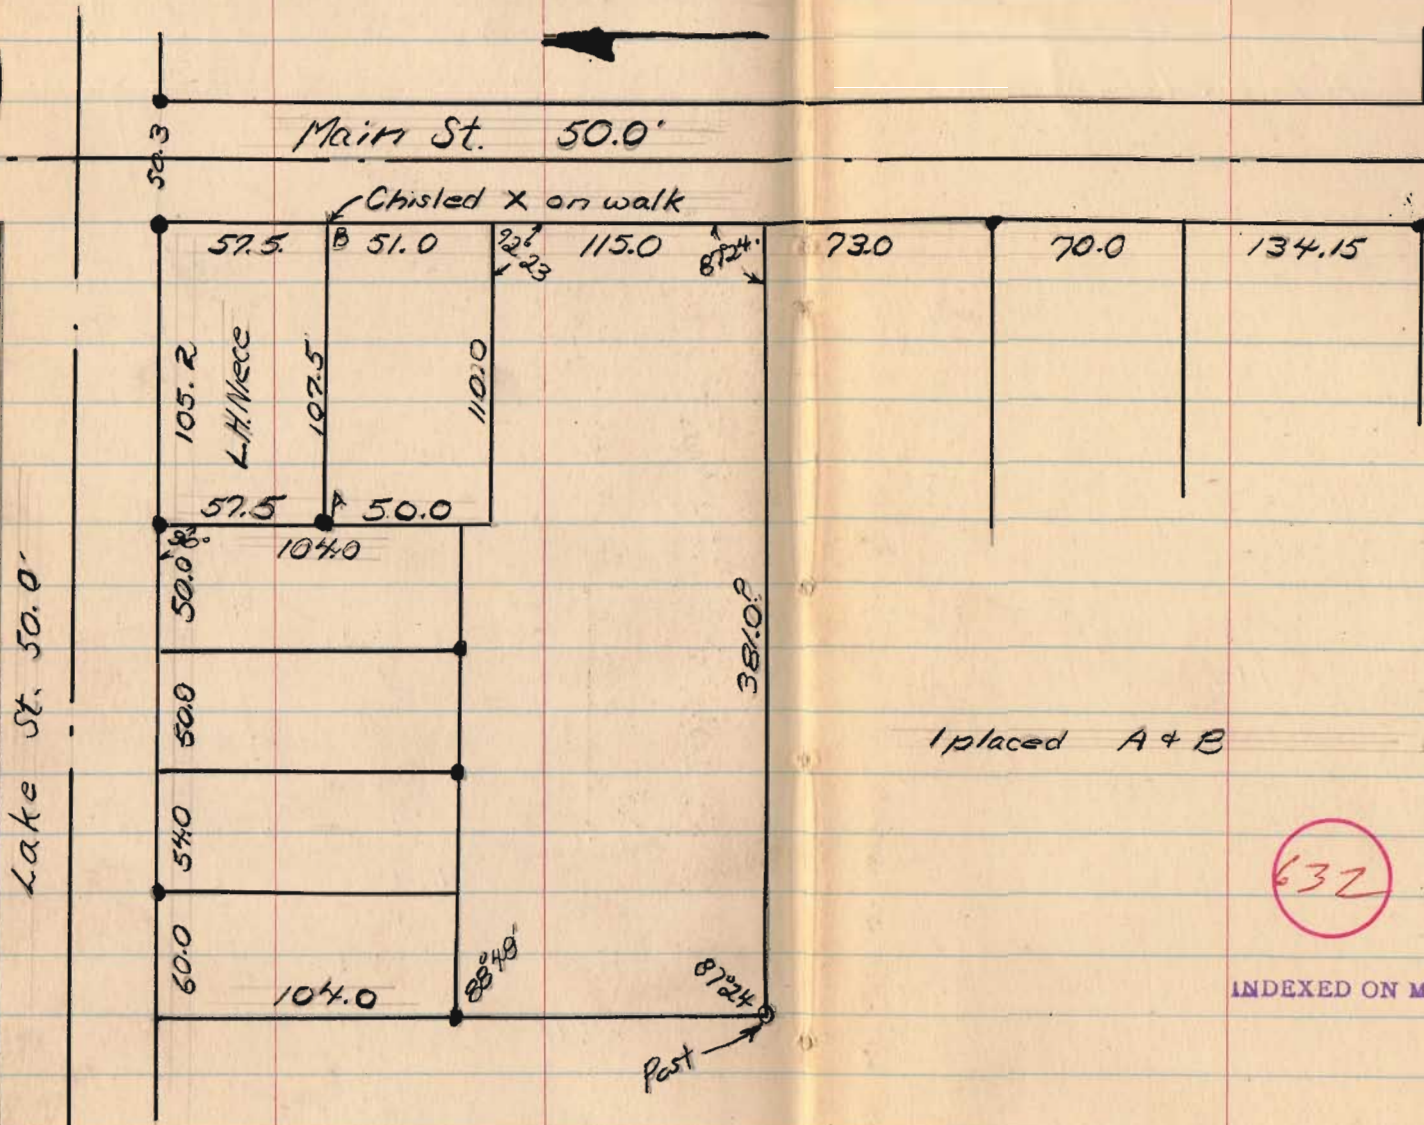 50.3
Main St. 50.0'
Chisled X on walk
57.5
B
51.0
92° 23
115.0
87°24'
73.0
70.0
134.15
105.2
L.H. Niece
107.5
110.0
57.5
A
50.0
104.0
50.0
50.0
54.0
60.0
Lake St. 50.0'
381.0?
104.0
88°48'
87°24
Post
I placed A & B
632
INDEXED ON M